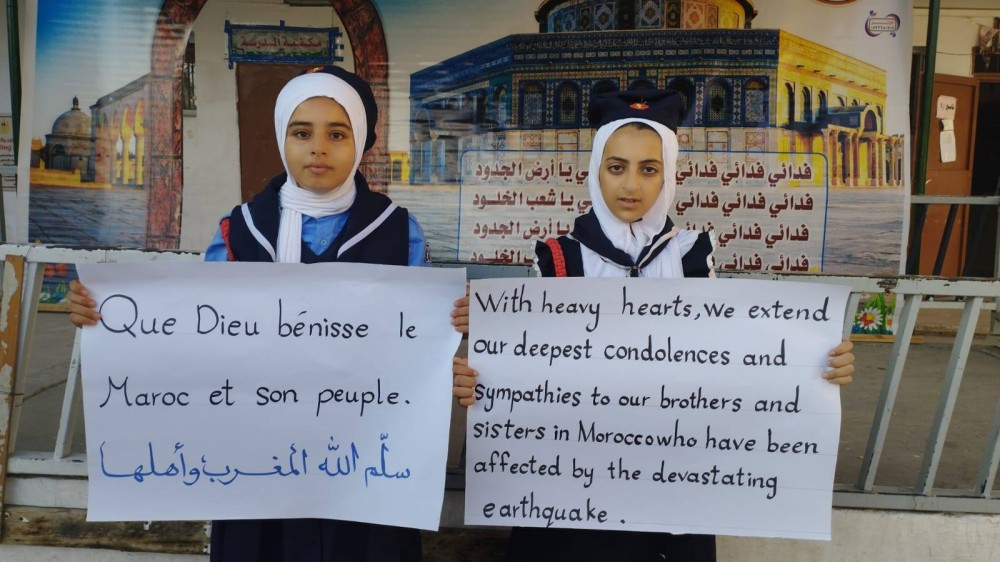 مكتبة المدرسة
فدائي فدائي فدائي يا أرض الجدود
فدائي فدائي فدائي يا شعب الخلود
فدائي فدائي فدائي يا أرض الجدود
فدائي فدائي فدائي يا شعب الخلود
Que Dieu bénisse le
Maroc et son peuple.
سلّم الله المغرب وأهلها
With heavy hearts, we extend
our deepest condolences and
sympathies to our brothers and
sisters in Morocco who have been
affected by the devastating
earthquake.